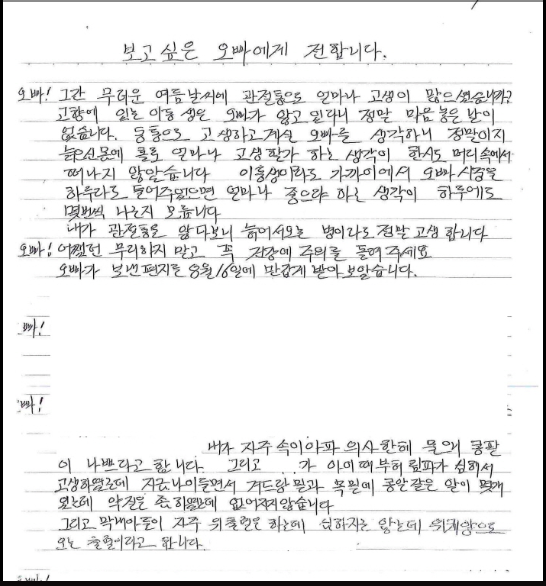 보고싶은 오빠에게 전합니다.
오빠! 그간 무더운 여름날씨에 관절통으로 얼마나 고생이 많으셨습니까?
고향에 있는 이동생은 오빠가 앓고 있다니 정말 마음 놓은 날이
없습니다. 통으로 고생하고계실 오빠를 생각하니 정말이지
늙으신몸에 홀로 얼마나 고생할가 하는 생각이 한시도 머리속에서
떠나지 않았습니다 이동생이라도 가까이에서 오빠 시중을
하루라도 들어주었으면 얼마나 좋으랴 하는 생각이 하루에도
몇번씩 나는지 모릅니다
내가 관절통을 앓다보니 늙어서오는 병이라도 정말 고생합니다
오빠! 어쨌던 무리하지 말고 꼭 건강에 주의를 돌려주세요
오빠가 보낸편지는 8월16일에 반갑게 받아보았습니다.
빠!
빠!
내가 자주 속이아파 의사한테 물으니 콩팥
이 나쁘다고합니다. 그리고 가 아이때부터 림파가 심해서
고생하였는데 지금나이들면서 겨드랑밑과 목밑에 콩알같은 알이 몇개
있는데 약질을 좀하였는데 없어지지않습니다
그리고 막내아들이 자주 위출혈을 하는데 심하지는 않는데 위궤양으로
오는 출혈이라고 합니다.
빠!